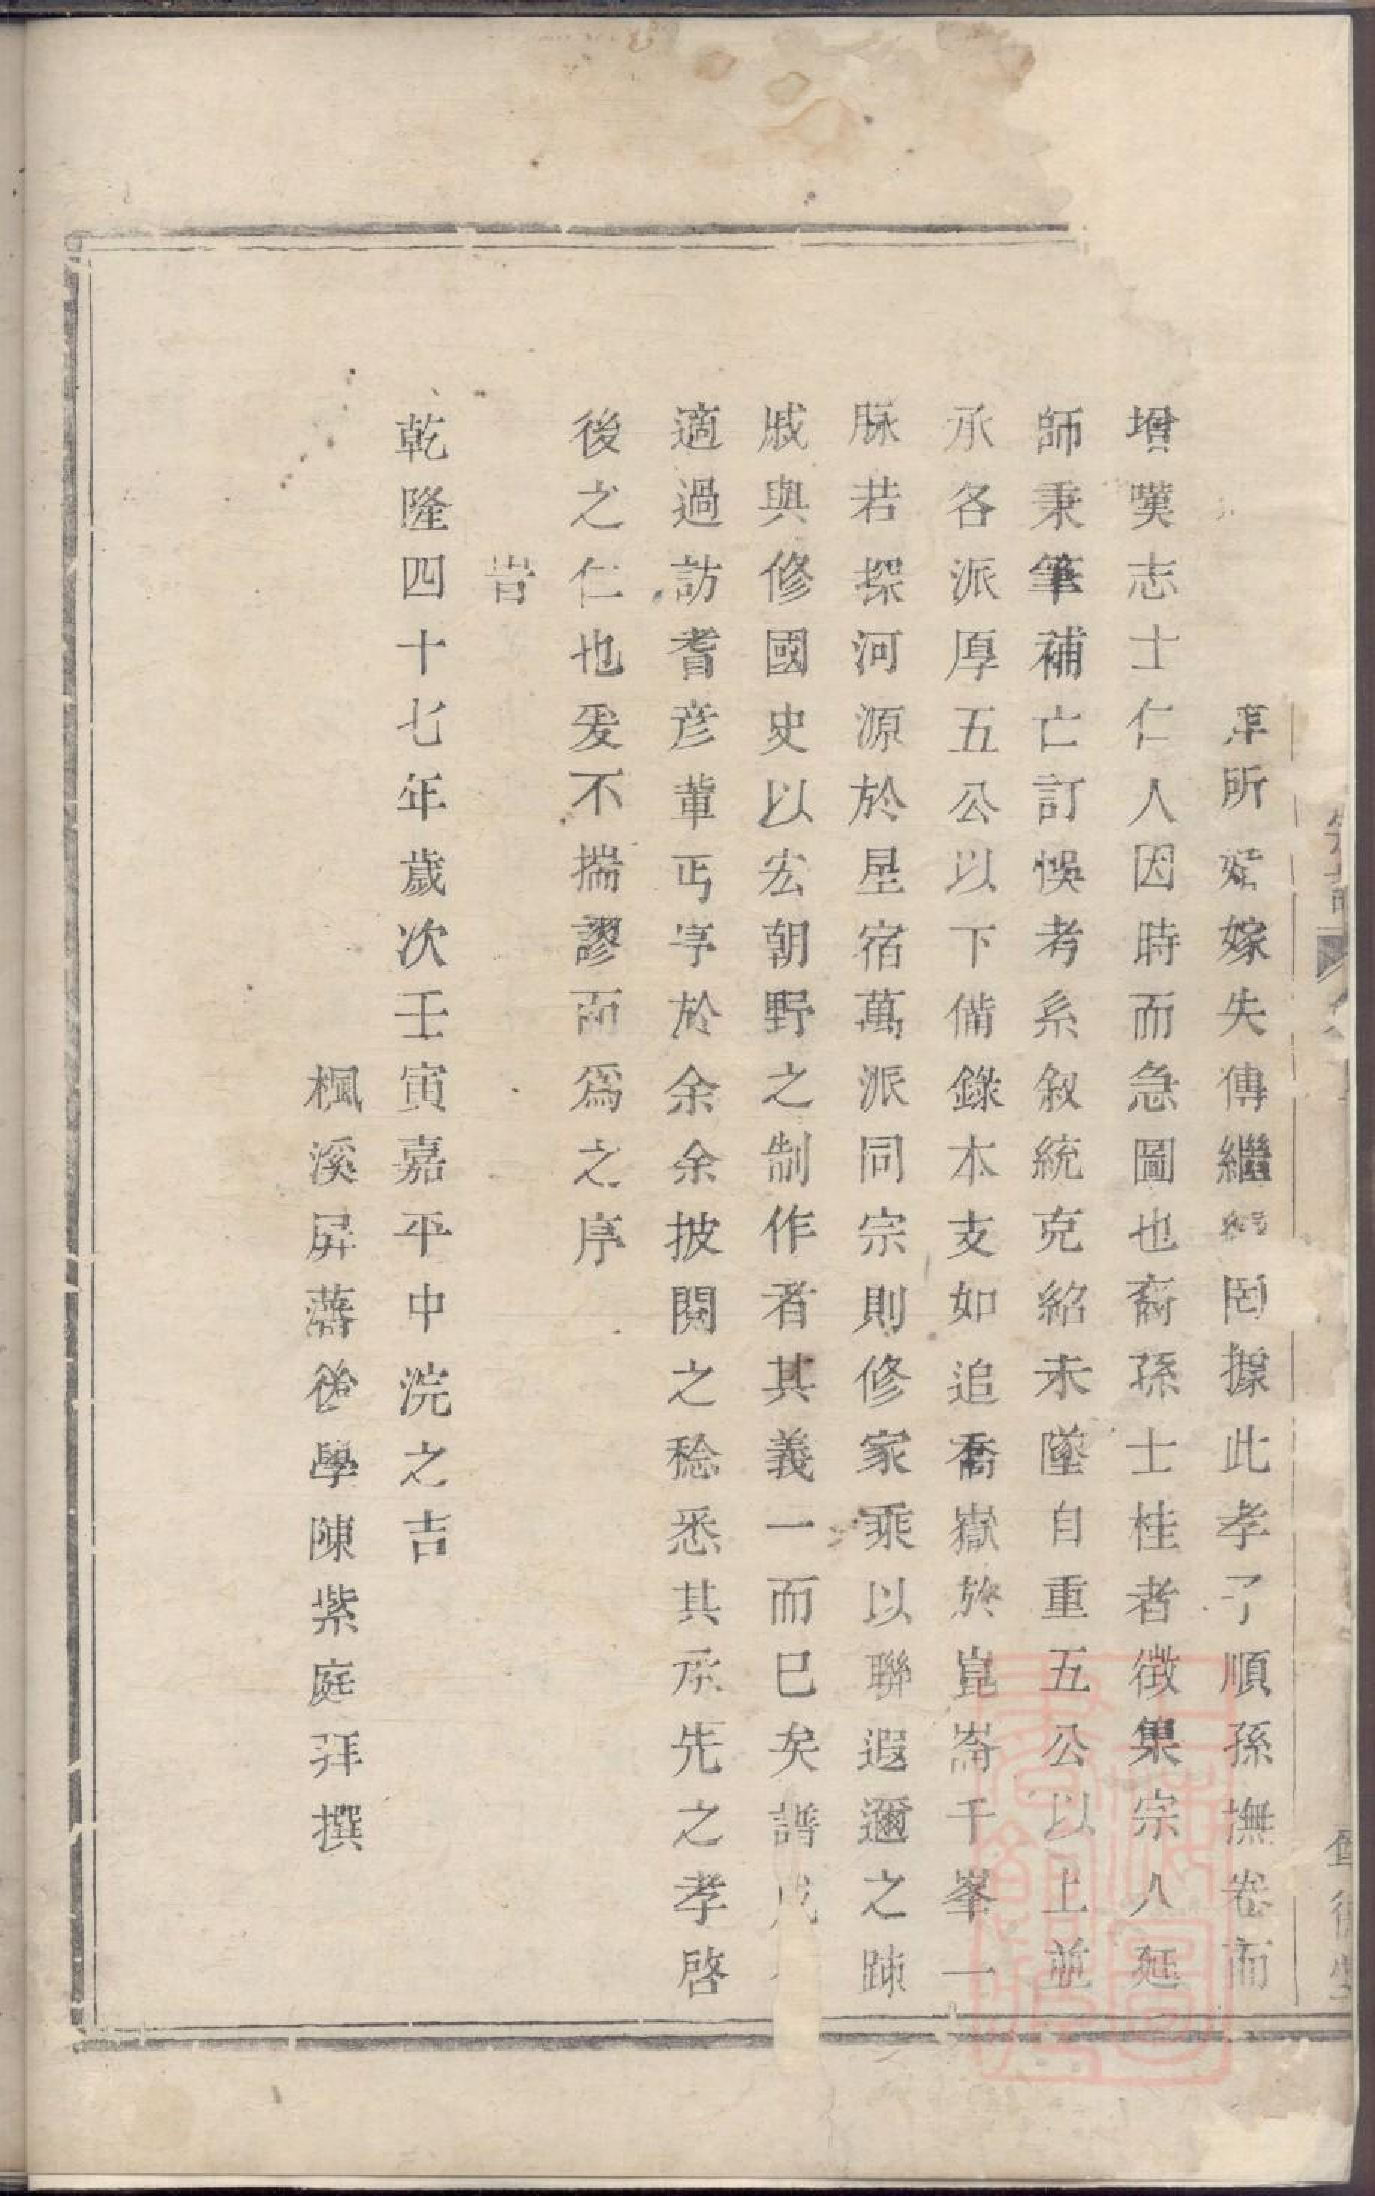 所嫁失傳繼罔據此孝子順孫撫卷而
增嘆志士仁人因時而急圖也裔孫士桂者徴集宗人延
師秉筆補亡訂悞考系敘統克紹未墜自重五公以上並
承各派厚五公以下備錄本支如追喬嶽於崑崙千峯一
脉若探河源於星宿萬派同宗則修家乘以聯遐邇之踈
戚與修國史以宏朝野之制作者其義一而巳矣譜成
適過訪耆彦輩丐序於余余披閱之稔悉其承先之孝啓
後之仁也爰不揣謬而爲之序
旹
乾隆四十七年歲次壬寅嘉平中浣之吉
楓溪屏蕃後學陳紫庭拜撰